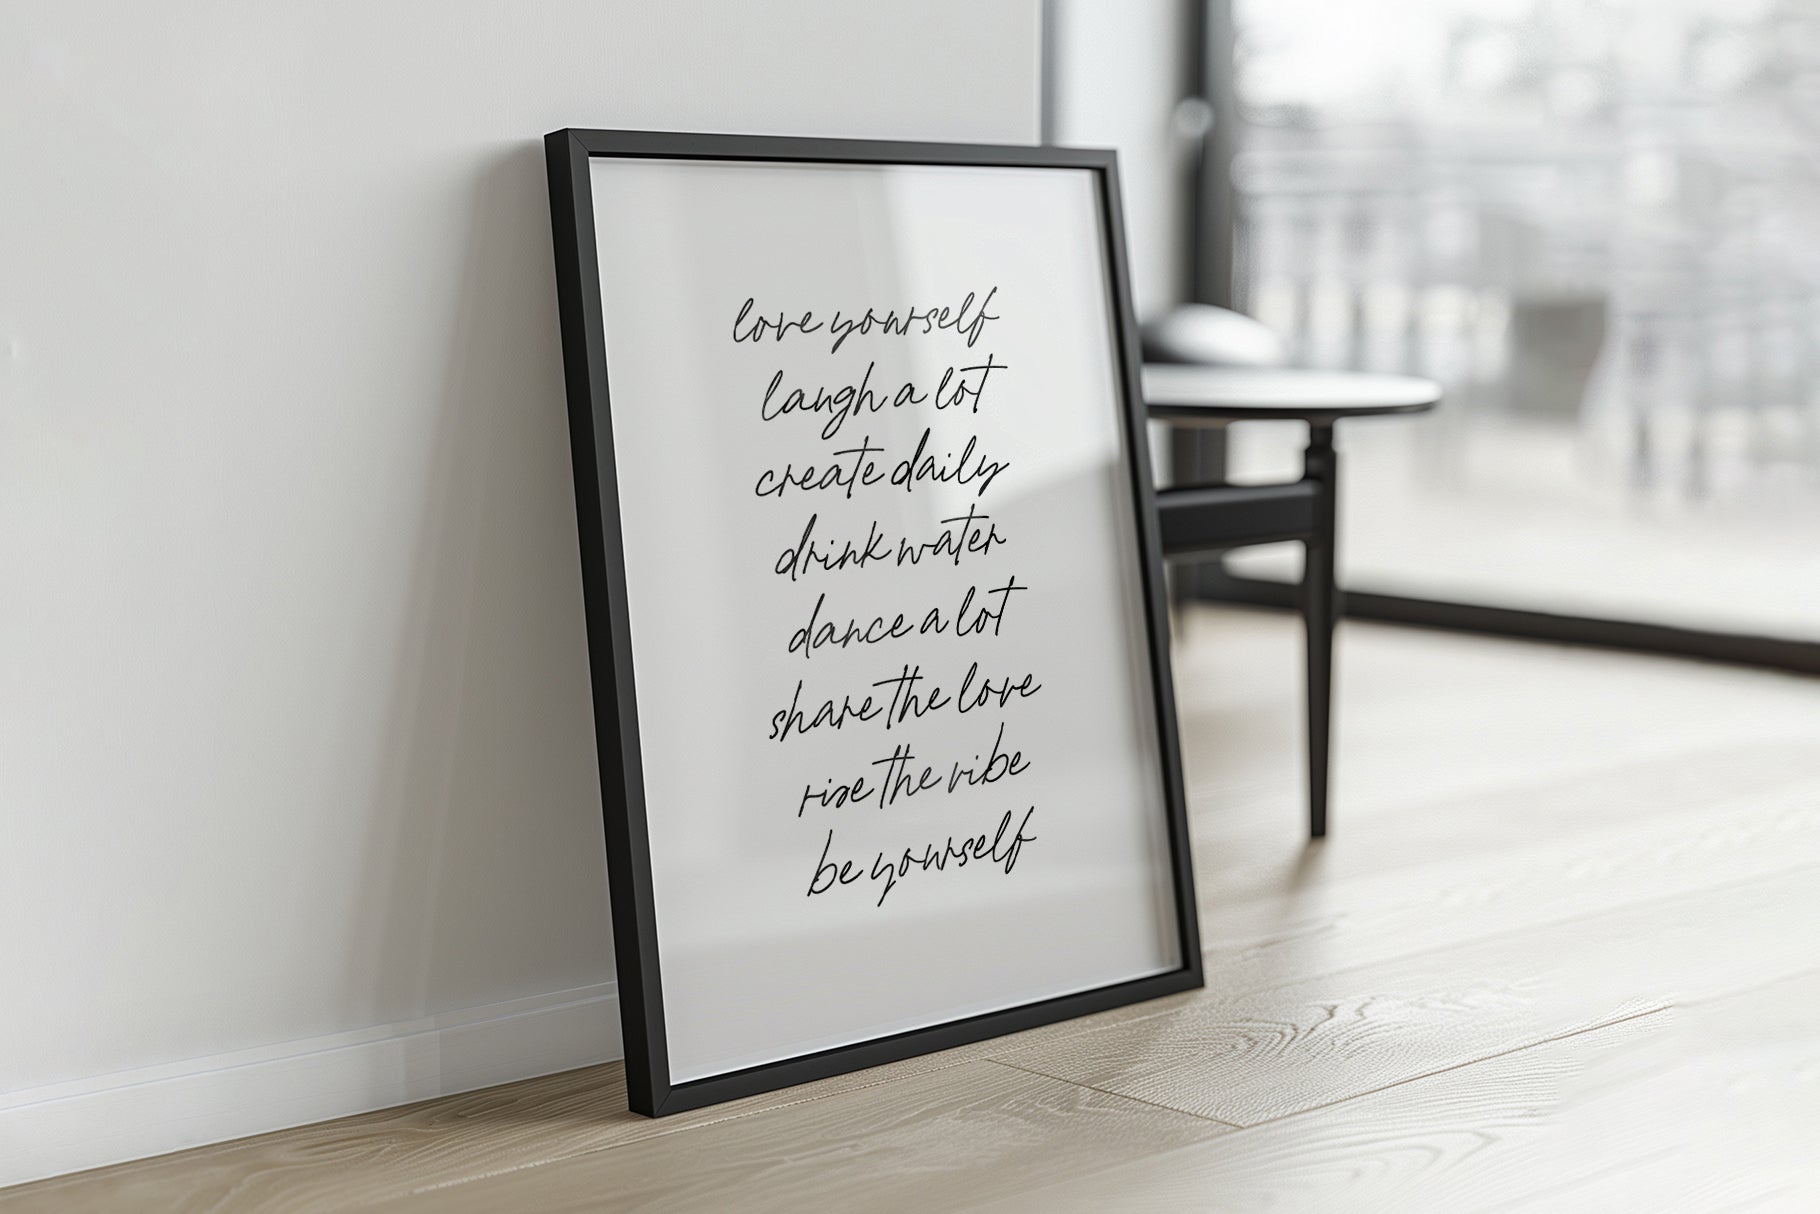 love yourself
laugh a lot
create daily
drink water
dance a lot
share the love
rise the vibe
be yourself